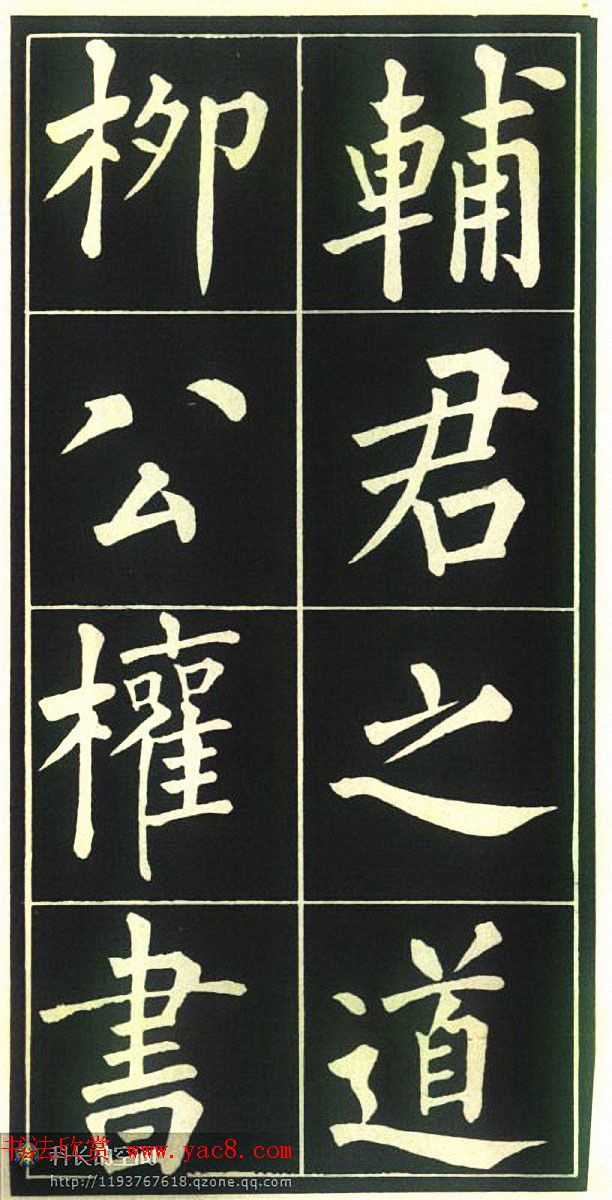 輔君之道
柳公權書
书法欣赏 www.yac8.com
科长的空间
http://1193767618.qzone.qq.com